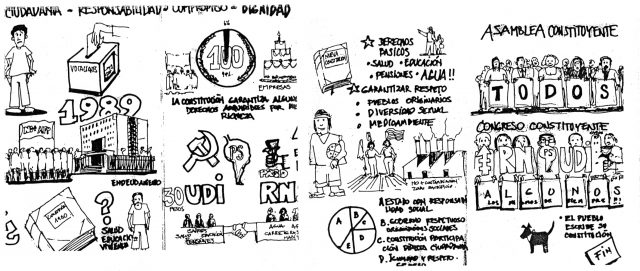 CIUDADANIA - RESPONSABILIDAD - COMPROMISO - DIGNIDAD
VOTACIONES
1989
ENDEUDAMIENTO
1980
?
SALUD
EDUCACION
VIVIENDA
100
EMPRESAS
LA CONSTITUCIÓN GARANTIZA ALGUNOS
DERECHOS
RIQUEZA
PS
30 UDI RN
PESOS
SALUD
NUEVA
DERECHOS
BASICOS
• SALUD • EDUCACIÓN
• PENSIONES • AGUA!!
GARANTIZAR RESPETO
• PUEBLOS ORIGINARIOS
• DIVERSIDAD SEXUAL
• MEDIOAMBIENTE
NO + CONTAMINACION
A B C D E
A. ESTADO CON RESPONSABI
LIDAD SOCIAL
B. GOBIERNO RESPETUOSO
ORGANIZACIONES SOCIALES
C. CONSTITUCION PARTICIPA
CIÓN DIRECTA CIUDADANA
D. IGUALDAD Y RESPETO
ASAMBLEA CONSTITUYENTE
TODOS
CONGRESO CONSTITUYENTE
RN UDI
ALGUNOS
• EL PUEBLO
ESCRIBE SU
CONSTITUCIÓN
FIN